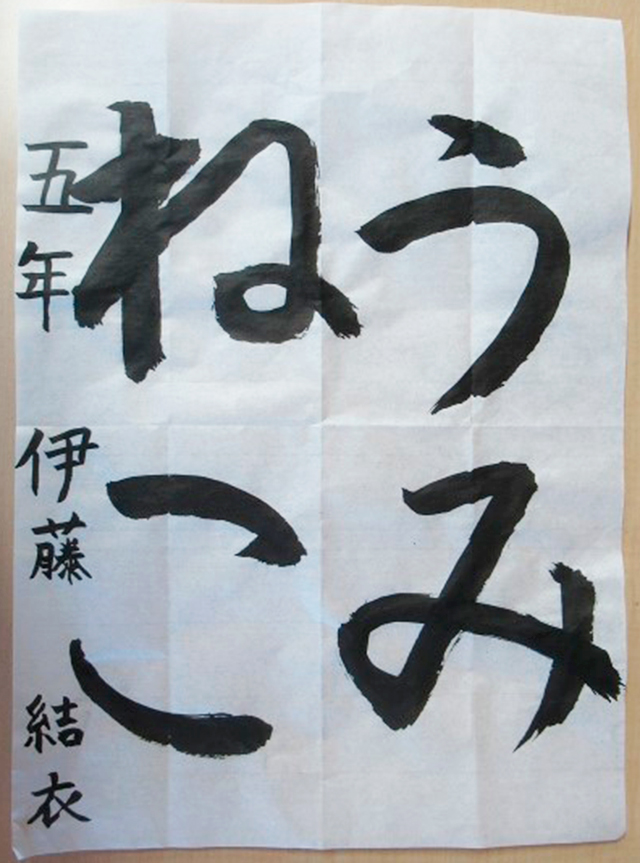 うみ
ねこ
五年 伊藤 結衣